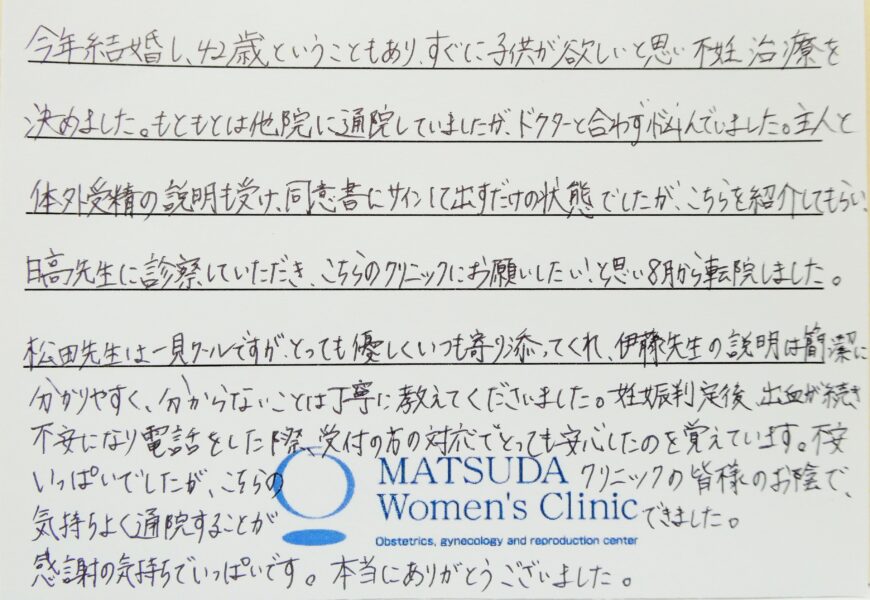 今年結婚し、42歳ということもあり、すぐに子供が欲しいと思い不妊治療を
決めました。もともとは他院に通院していましたが、ドクターと合わず悩んでいました。主人と
体外受精の説明も受け、同意書にサインして出すだけの状態でしたが、こちらを紹介してもらい、
日高先生に診察していただき、こちらのクリニックにお願いしたい！と思い8月から転院しました。
松田先生は一見クールですが、とっても優しくいつも寄り添ってくれ、伊藤先生の説明は簡潔に
分かりやすく、分からないことは丁寧に教えてくださいました。妊娠判定後、出血が続き
不安になり電話をした際、受付の方の対応でとっても安心したのを覚えています。不安
いっぱいでしたが、こちらの MATSUDA クリニックの皆様のお陰で、
Women's Clinic
気持ちよく通院することが できました。
Obstetrics, gynecology and reproduction center
感謝の気持ちでいっぱいです。本当にありがとうございました。